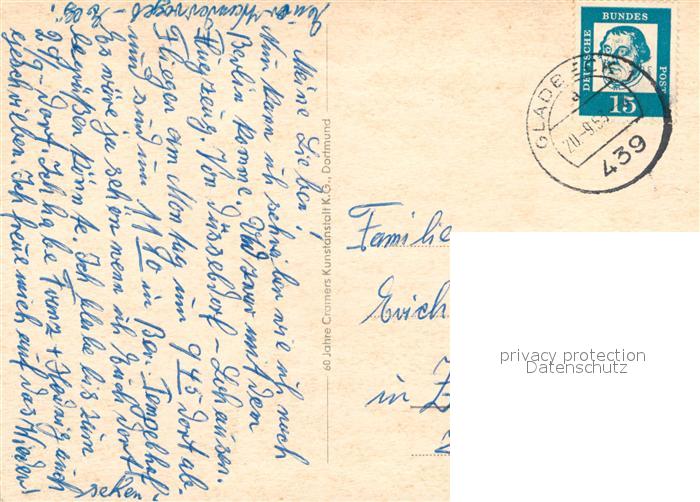 Meine Lieben!
Nun kann ich schreiben wie ich nach
Berlin komme. Und zwar mit dem
Flugzeug. Von Düsseldorf - Lohausen.
Fliegen am Montag um 9 45 dort ab
und sind um 11 80 in Ber. Tempelhof.
Es wäre ja schön wenn ich Euch dort
begrüßen könnte. Ich bleibe bis zum
29/9 dort. Ich habe Franz + Hedwig auch
geschrieben. Ich freue mich auf das Wieder
sehen
60 Jahre Cramers Kunstanstalt K.G., Dortmund
DEUTSCHE BUNDES POST
15
GLADBECK
20.-9.63
439
Familie
Erich
in
privacy protection
Datenschutz